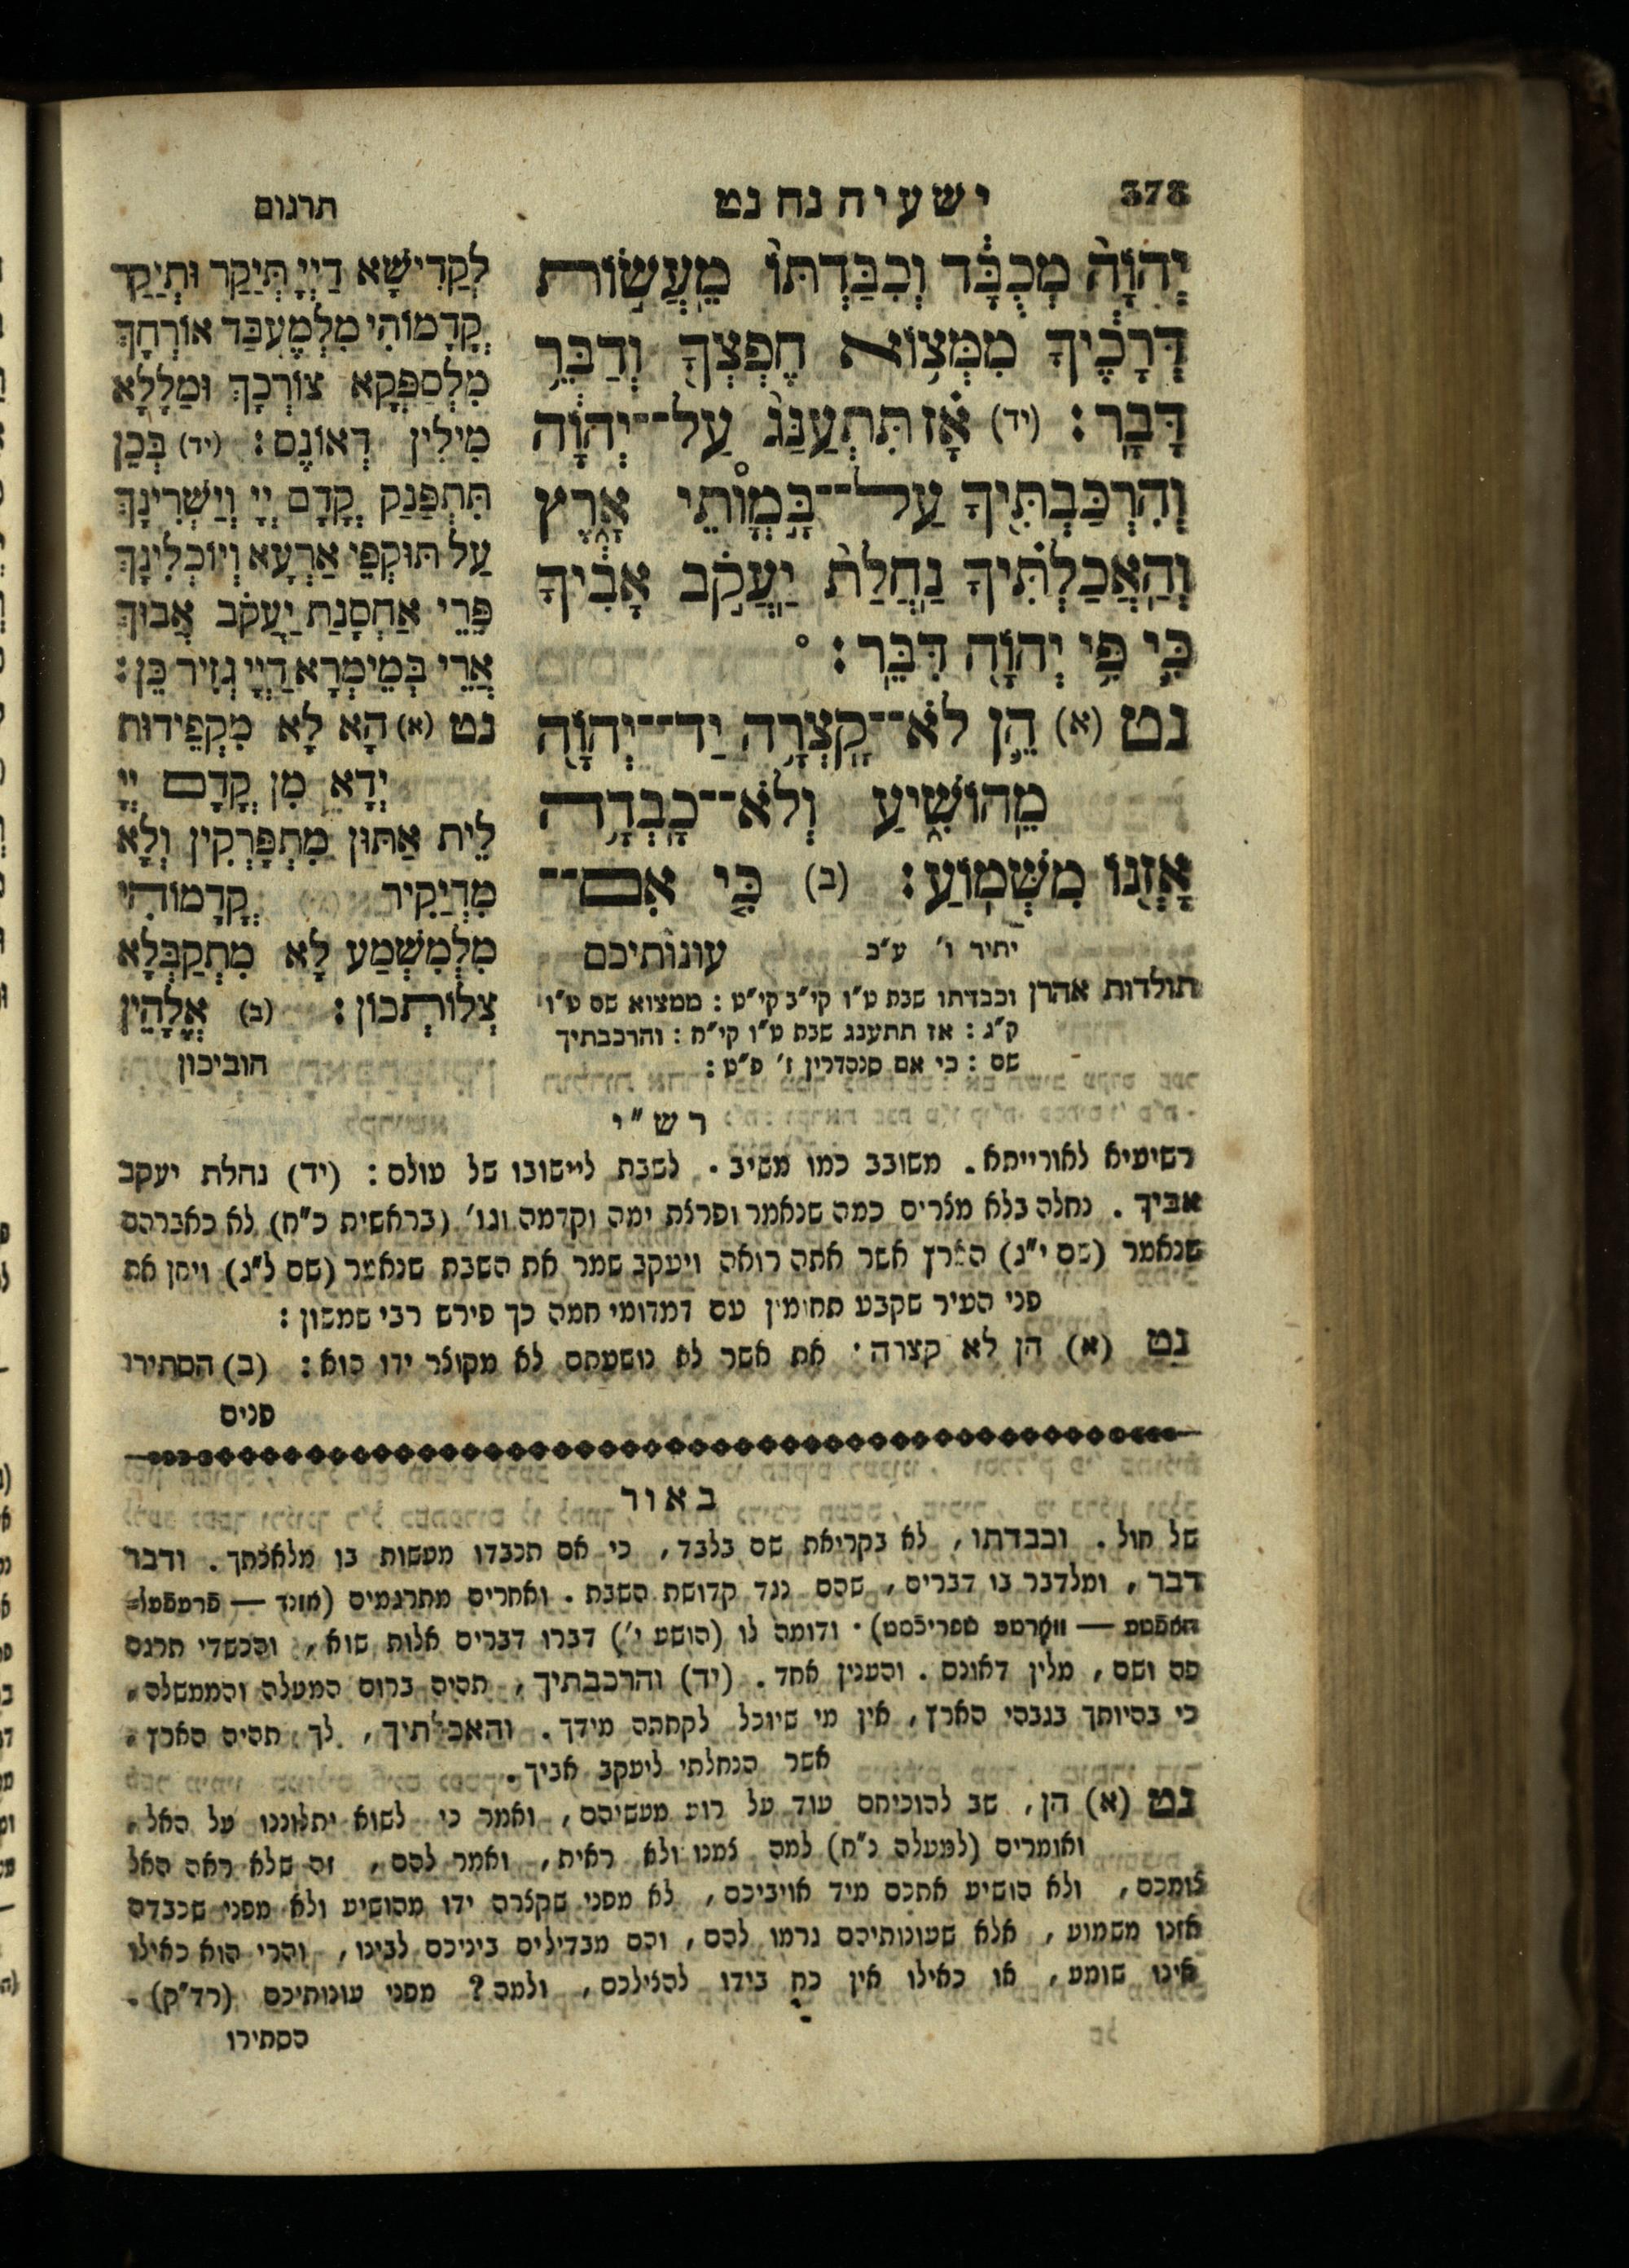 378
ישעיה נח נט
תרגום
יְהוָה֙ מְכֻבָּ֔ד וְכִבַּדְתּוֹ֙ מֵֽעֲשׂ֣וֹת
דְּרָכֶ֔יךָ מִמְּצ֥וֹא חֶפְצְךָ֖ וְדַבֵּ֥ר
דָּבָֽר׃ (יד) אָ֗ז תִּתְעַנַּג֙ עַל־יְהוָ֔ה
וְהִרְכַּבְתִּ֖יךָ עַל־בָּ֣מֳותֵי אָ֑רֶץ
וְהַֽאֲכַלְתִּ֗יךָ נַֽחֲלַת֙ יַֽעֲקֹ֣ב אָבִ֔יךָ
כִּ֛י פִּ֥י יְהוָ֖ה דִּבֵּֽר׃ °
נט (א) הֵ֛ן לֹא־קָֽצְרָ֥ה יַד־יְהוָ֖ה
מֵֽהוֹשִׁ֑יעַ וְלֹא־כָֽבְדָ֥ה
אָזְנ֖וֹ מִשְּׁמֽוֹעַ׃ (ב) כִּ֤י אִם־
יתיר ו׳ ע״כ
עונותיכם
תולדות אהרן וכבדתו שבת ט״ו קי״ב קי״ט : ממצוא שם ט״ו
ק״ג : אז תתענג שבת ט״ו קי״ח : והרכבתיך
שם : כי אם סנהדרין ז׳ ס״ט :
לְקַדִישָׁא דַיְיָ תְּיַקַר וּתְיַקַר
קֳדָמוֹהִי מִלְמֶעְבַּד אוֹרְחָךְ
מִלְסַפְּקָא צוֹרְכָךְ וּמַלָלָא
מִילִין דְאוֹנֶס׃ (יד) בְּכֵן
תִּתְפַּנַק קֳדָם יְיָ וְיַשְׁרִינָךְ
עַל תּוּקְפֵי אַרְעָא וְיוֹכְלִינָךְ
פֵּרֵי אַחְסָנַת יַעֲקֹב אֲבוּךְ
אֲרֵי בְּמֵימְרָא דַיְיָ גְזִיר כֵּן׃
נט (א) הָא לָא מִקְפֵידוּת
יְדָא מִן קֳדָם יְיָ
לֵית אַתּוּן מִתְפָּרְקִין וְלָא
מִדְיַקִיר קֳדָמוֹהִי
מִלְמִשְׁמַע לָא מִתְקַבְּלָא
צְלוֹתְכוֹן׃ (ב) אֱלָהֵין
חוביכון
רש״י
רשיעיא לאורייתא. משובב כמו משיב. לשבת ליישובו של עולם : (יד) נחלת יעקב
אביך. נחלה בלא מצרים כמה שנאמר ופרצת ימה וקדמה וגו׳ (בראשית כ״ח) לא כאברהם
שנאמר (שם י״ג) הארץ אשר אתה רואה ויעקב שמר את השבת שנאמר (שם ל״ג) ויחן את
פני העיר שקבע תחומין עם דמדומי חמה כך פירש רבי שמשון :
נט (א) הן לא קצרה. את אשר לא נושעתם לא מקוצר ידו הוא : (ב) הסתירו
פנים
באור
של חול. וכבדתו, לא בקריאת שם בלבד, כי אם תכבדו מעשות בו מלאכתך. ודבר
דבר, ומלדבר בו דברים, שהם נגד קדושת השבת. ואחרים מתרגמים (אונד — פרעפעל=
האפטע — ווארטע שפריכסט). ודומה לו (הושע י׳) דברו דברים אלות שוא, והכשדי תרגם
פה ושם, מלין דאונס. והענין אחד. (יד) והרכבתיך, תהיה ברום המעלה והממשלה,
כי בהיותך בגבהי הארץ, אין מי שיוכל לקחתה מידך. והאכלתיך, לך תהיה הארץ,
אשר הנחלתי ליעקב אביך.
נט (א) הן, שב להוכיחם עוד על רוע מעשיהם, ואמר כי לשוא יתלוננו על האל,
ואומרים (למעלה נ״ח) למה צמנו ולא ראית, ואמר להם, זה שלא ראה האל
צומכם, ולא הושיע אתכם מיד אויביכם, לא מפני שקצרה ידו מהושיע ולא מפני שכבדה
אזנו משמוע, אלא שעונותיהם גרמו להם, והם מבדילים ביניכם לבינו, והרי הוא כאילו
אינו שומע, או כאילו אין כח בידו להצילכם, ולמה? מפני עונותיכם (רד״ק).
הסתירו